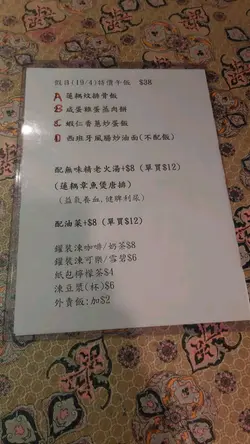 假日(19/4)特價午飯 $38
A 蓮藕炆排骨飯
B 咸蛋雞蛋蒸肉餅
C 蝦仁香蔥炒蛋飯
D 西班牙風腸炒油面(不配飯)
配無味精老火湯+$8 (單買$12)
(蓮藕章魚煲唐排)
(益氣養血,健脾利尿)
配油菜+$8 (單買$12)
罐裝凍咖啡/奶茶$8
罐裝凍可樂/雪碧$6
紙包檸檬茶$4
凍豆漿(杯)$6
外賣飯:加$2